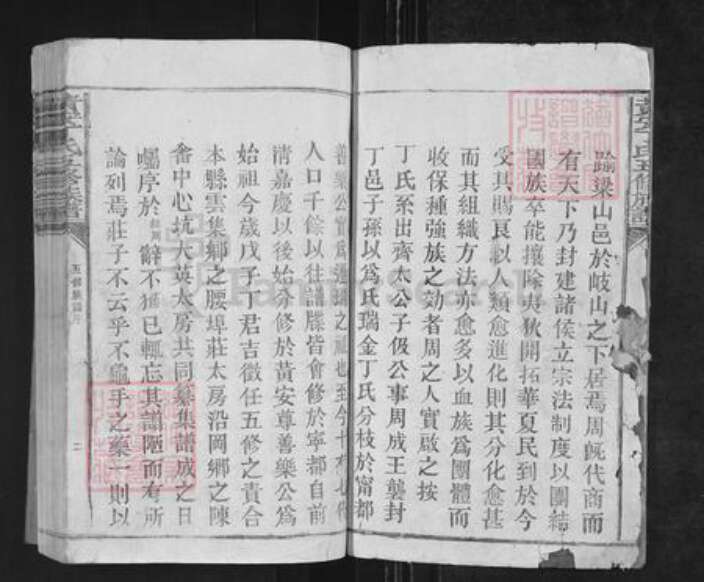 踰梁山邑於岐山之下居焉周旣代商而
有天下乃封建諸侯立宗法制度以團結
國族卒能攘除夷狄開拓華夏民到於今
受其賜良以人類愈進化則其分化愈甚
而其組織方法亦愈多以血族爲團體而
收保種強族之効者周之人實啟之按
丁氏系出齊太公子伋公事周成王襲封
丁邑子孫以爲氏瑞金丁氏分枝於甯都
善樂公實爲遷瑞之祖也至今十有七代
人口千餘以往譜牒皆會修於寧都自前
清嘉慶以後始分修於黃安尊善樂公爲
始祖今歲戊子丁君吉徵任五修之責合
本縣雲集鄉之腰埠莊太房沿岡鄉之陳
畬中心坑大英太房共同纂集譜成之日
囑序於 辭不獲已輒忘其譾陋而有所
論列焉莊子不云乎不龜手之藥一則以
丁氏五修族譜
五修族譜序
二